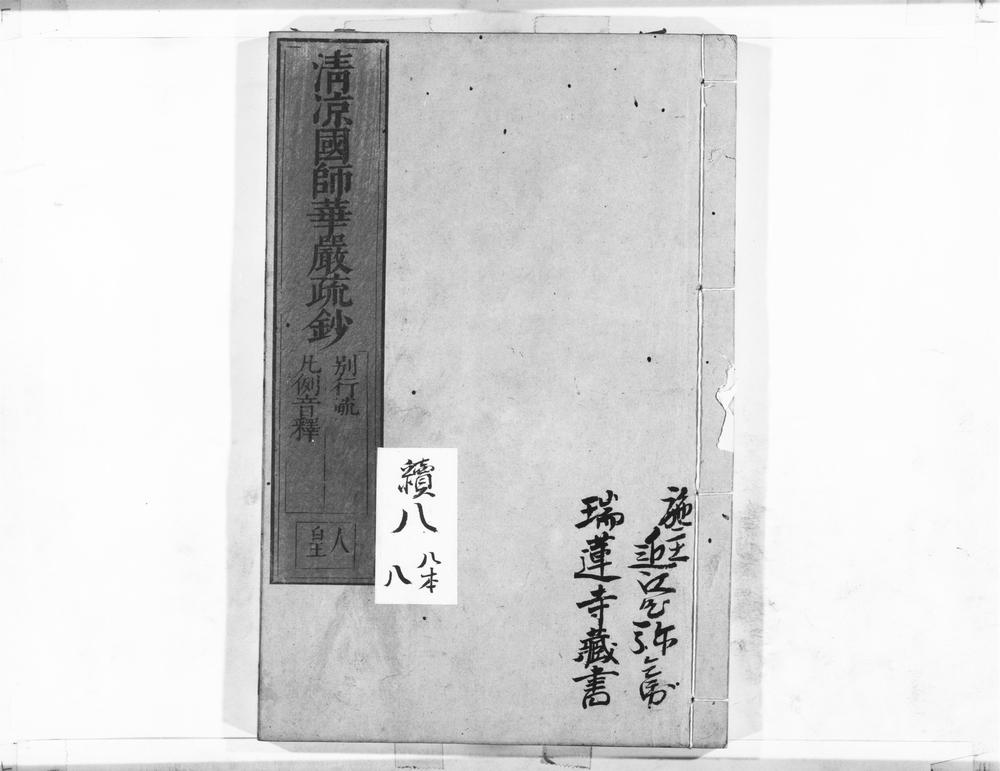 清涼國師華嚴疏鈔
別行疏
凡例音釋
人
皇
續
八
八本
八
施主近江屋弥三衛
瑞蓮寺藏書